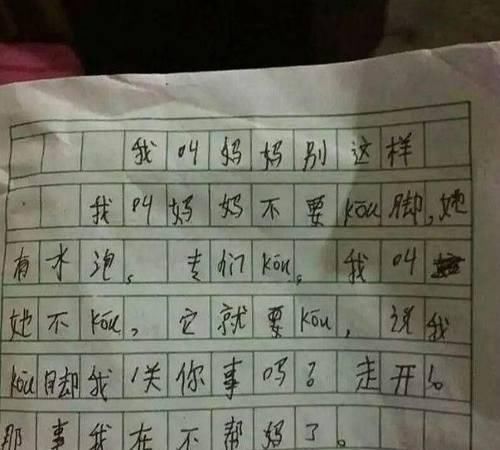 我叫妈妈别这样
我叫妈妈不要kōu脚,她
有水泡。专门kōu。我叫
她不kōu,它就要kōu,说我
kōu脚我,关你事吗?走开!。
那事我在不帮妈了。